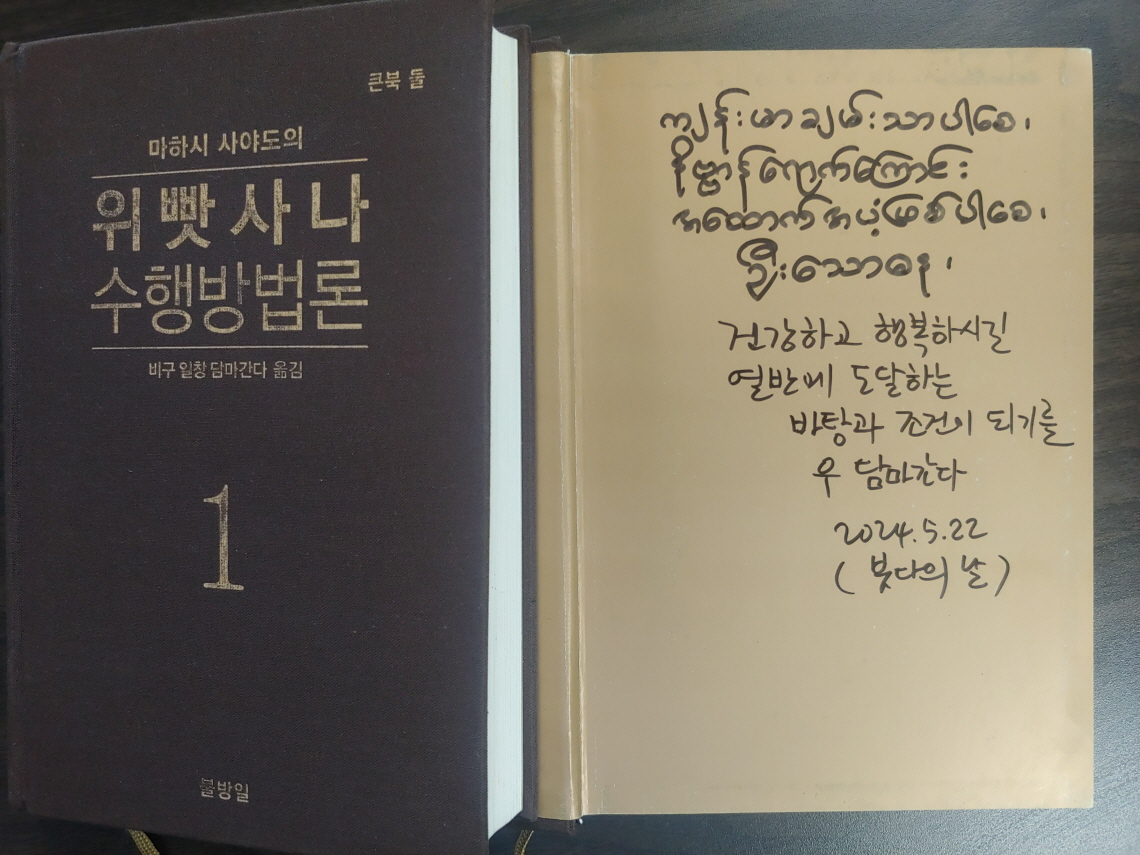 큰북 둘
마하시 사야도의
위빳사나
수행방법론
비구 일창 담마간다 옮김
1
불방일
ကျန်းမာချမ်းသာပါစေ၊
နိဗ္ဗာန်ရောက်ကြောင်း
အထောက်အပံ့ဖြစ်ပါစေ၊
ဦးသောဓန၊
건강하고 행복하시길
열반에 도달하는
바탕과 조건이 되기를
우 담마간다
2024.5.22
(붓다의 날)